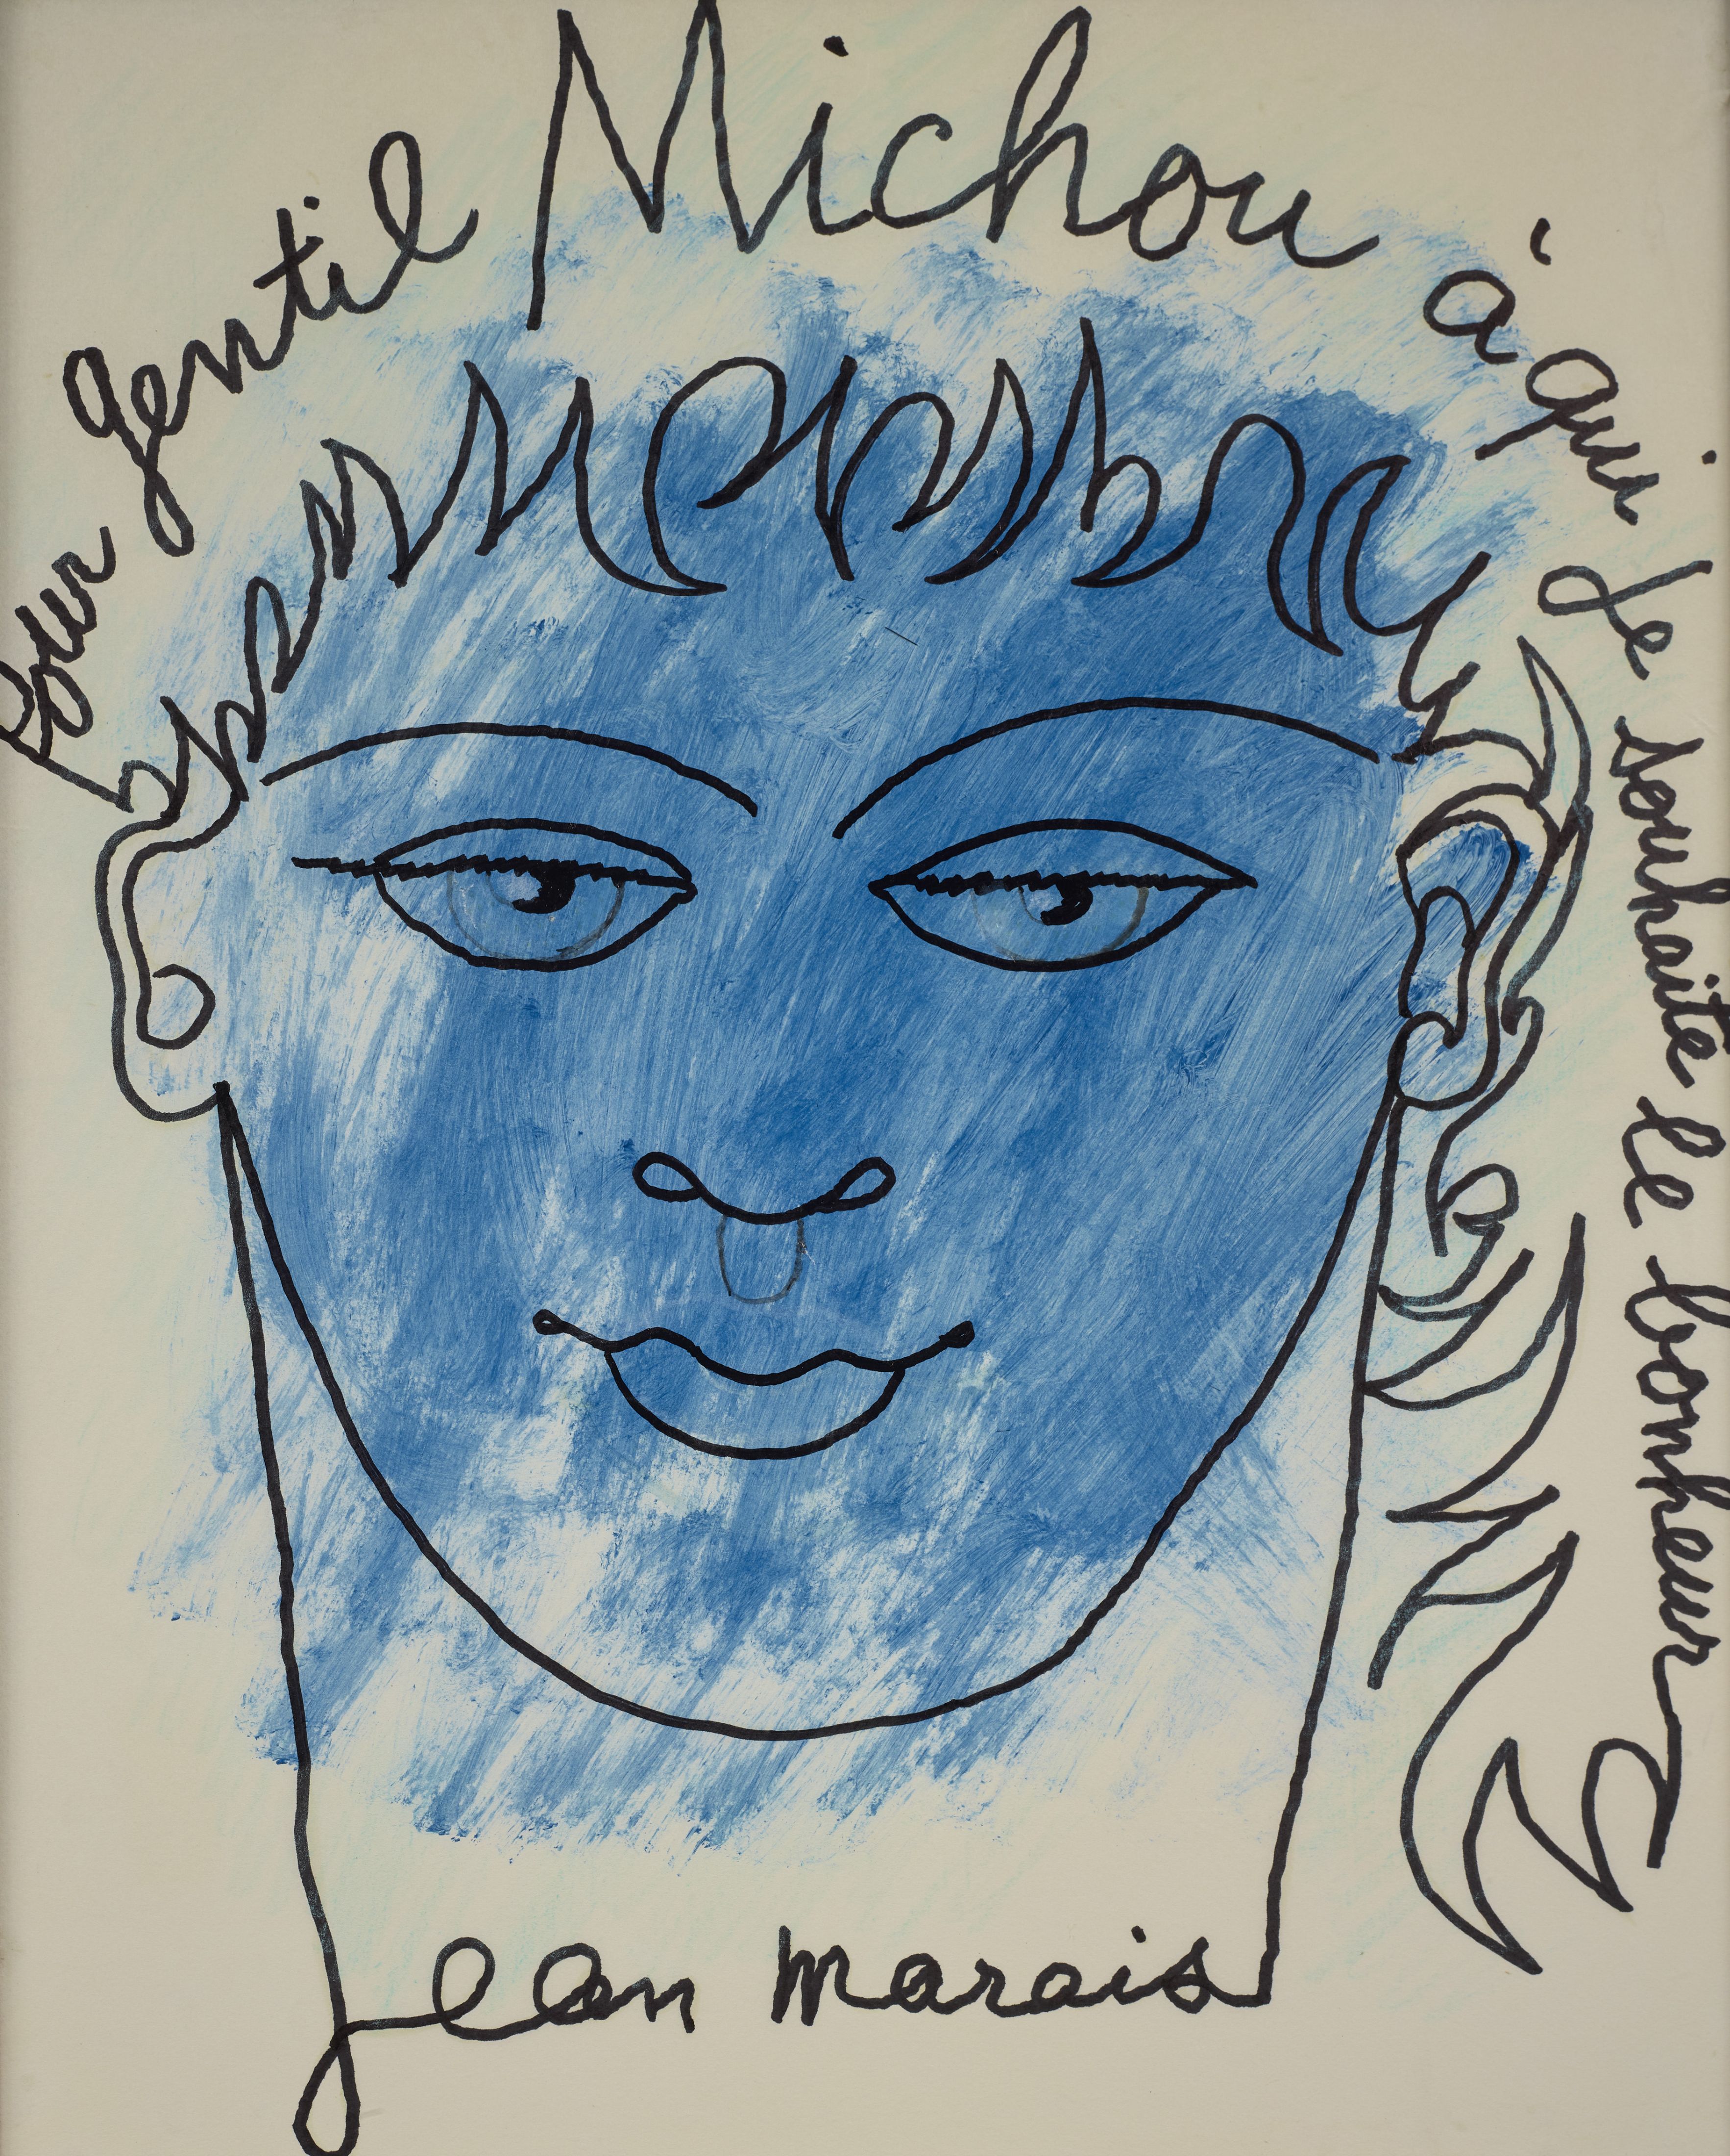 Pour gentil Michou à qui je souhaite le bonheur
jean marais